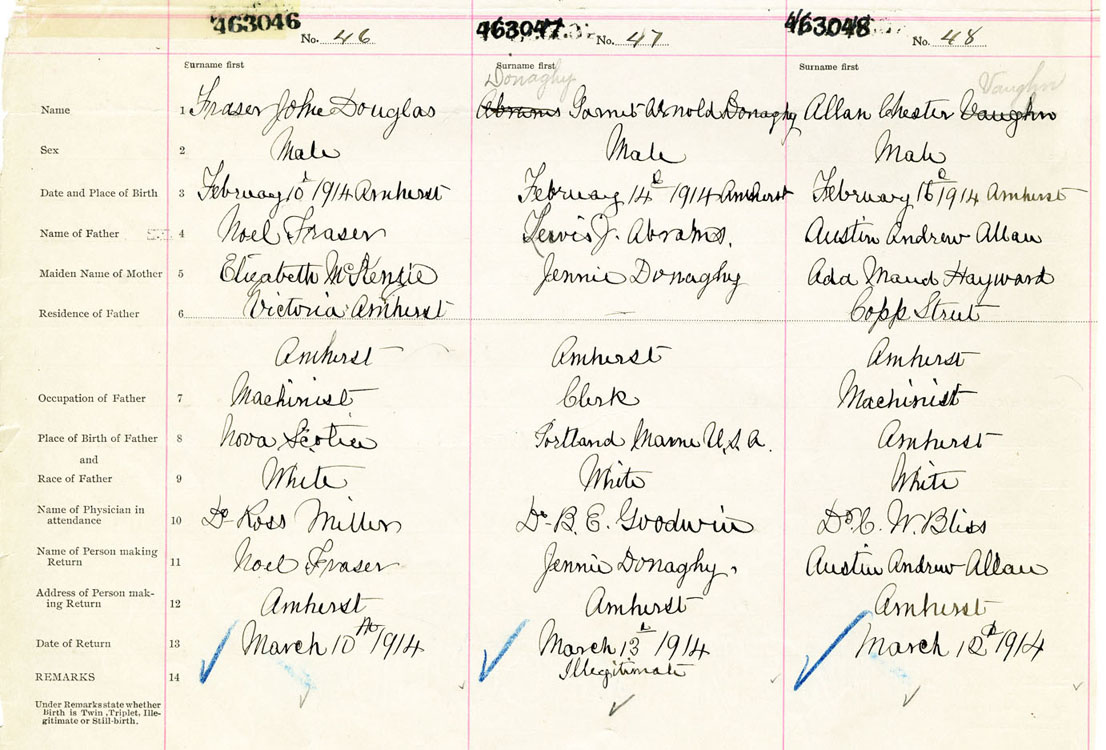 463046 463047 463048
No. 46 No. 47 No. 48
Surname first Surname first Surname first
Donaghy Vaughn
Name 1 Fraser John Douglas Abrams Garnet Arnold Donaghy Allan Chester Vaughn
Sex 2 Male Male Male
Date and Place of Birth 3 February 10th 1914 Amherst February 14th 1914 Amherst February 16th 1914 Amherst
Name of Father 4 Noel Fraser Lewis J. Abrams. Austin Andrew Allan
Maiden Name of Mother 5 Elizabeth McKenzie Jennie Donaghy Ada Maud Hayward
Residence of Father 6 Victoria Amherst — Copp Street
Amherst Amherst Amherst
Occupation of Father 7 Machinist Clerk Machinist
Place of Birth of Father 8 Nova Scotia Portland Maine U.S.A. Amherst
and
Race of Father 9 White White White
Name of Physician in
attendance 10 Dr Ross Miller Dr. B. E. Goodwin Dr C. W. Bliss
Name of Person making
Return 11 Noel Fraser Jennie Donaghy. Austin Andrew Allan
Address of Person mak-
ing Return 12 Amherst Amherst Amherst
Date of Return 13 March 10th 1914 March 13th 1914 March 12th 1914
REMARKS 14 Illegitimate
Under Remarks state whether
Birth is Twin, Triplet, Ille-
gitimate or Still-birth.